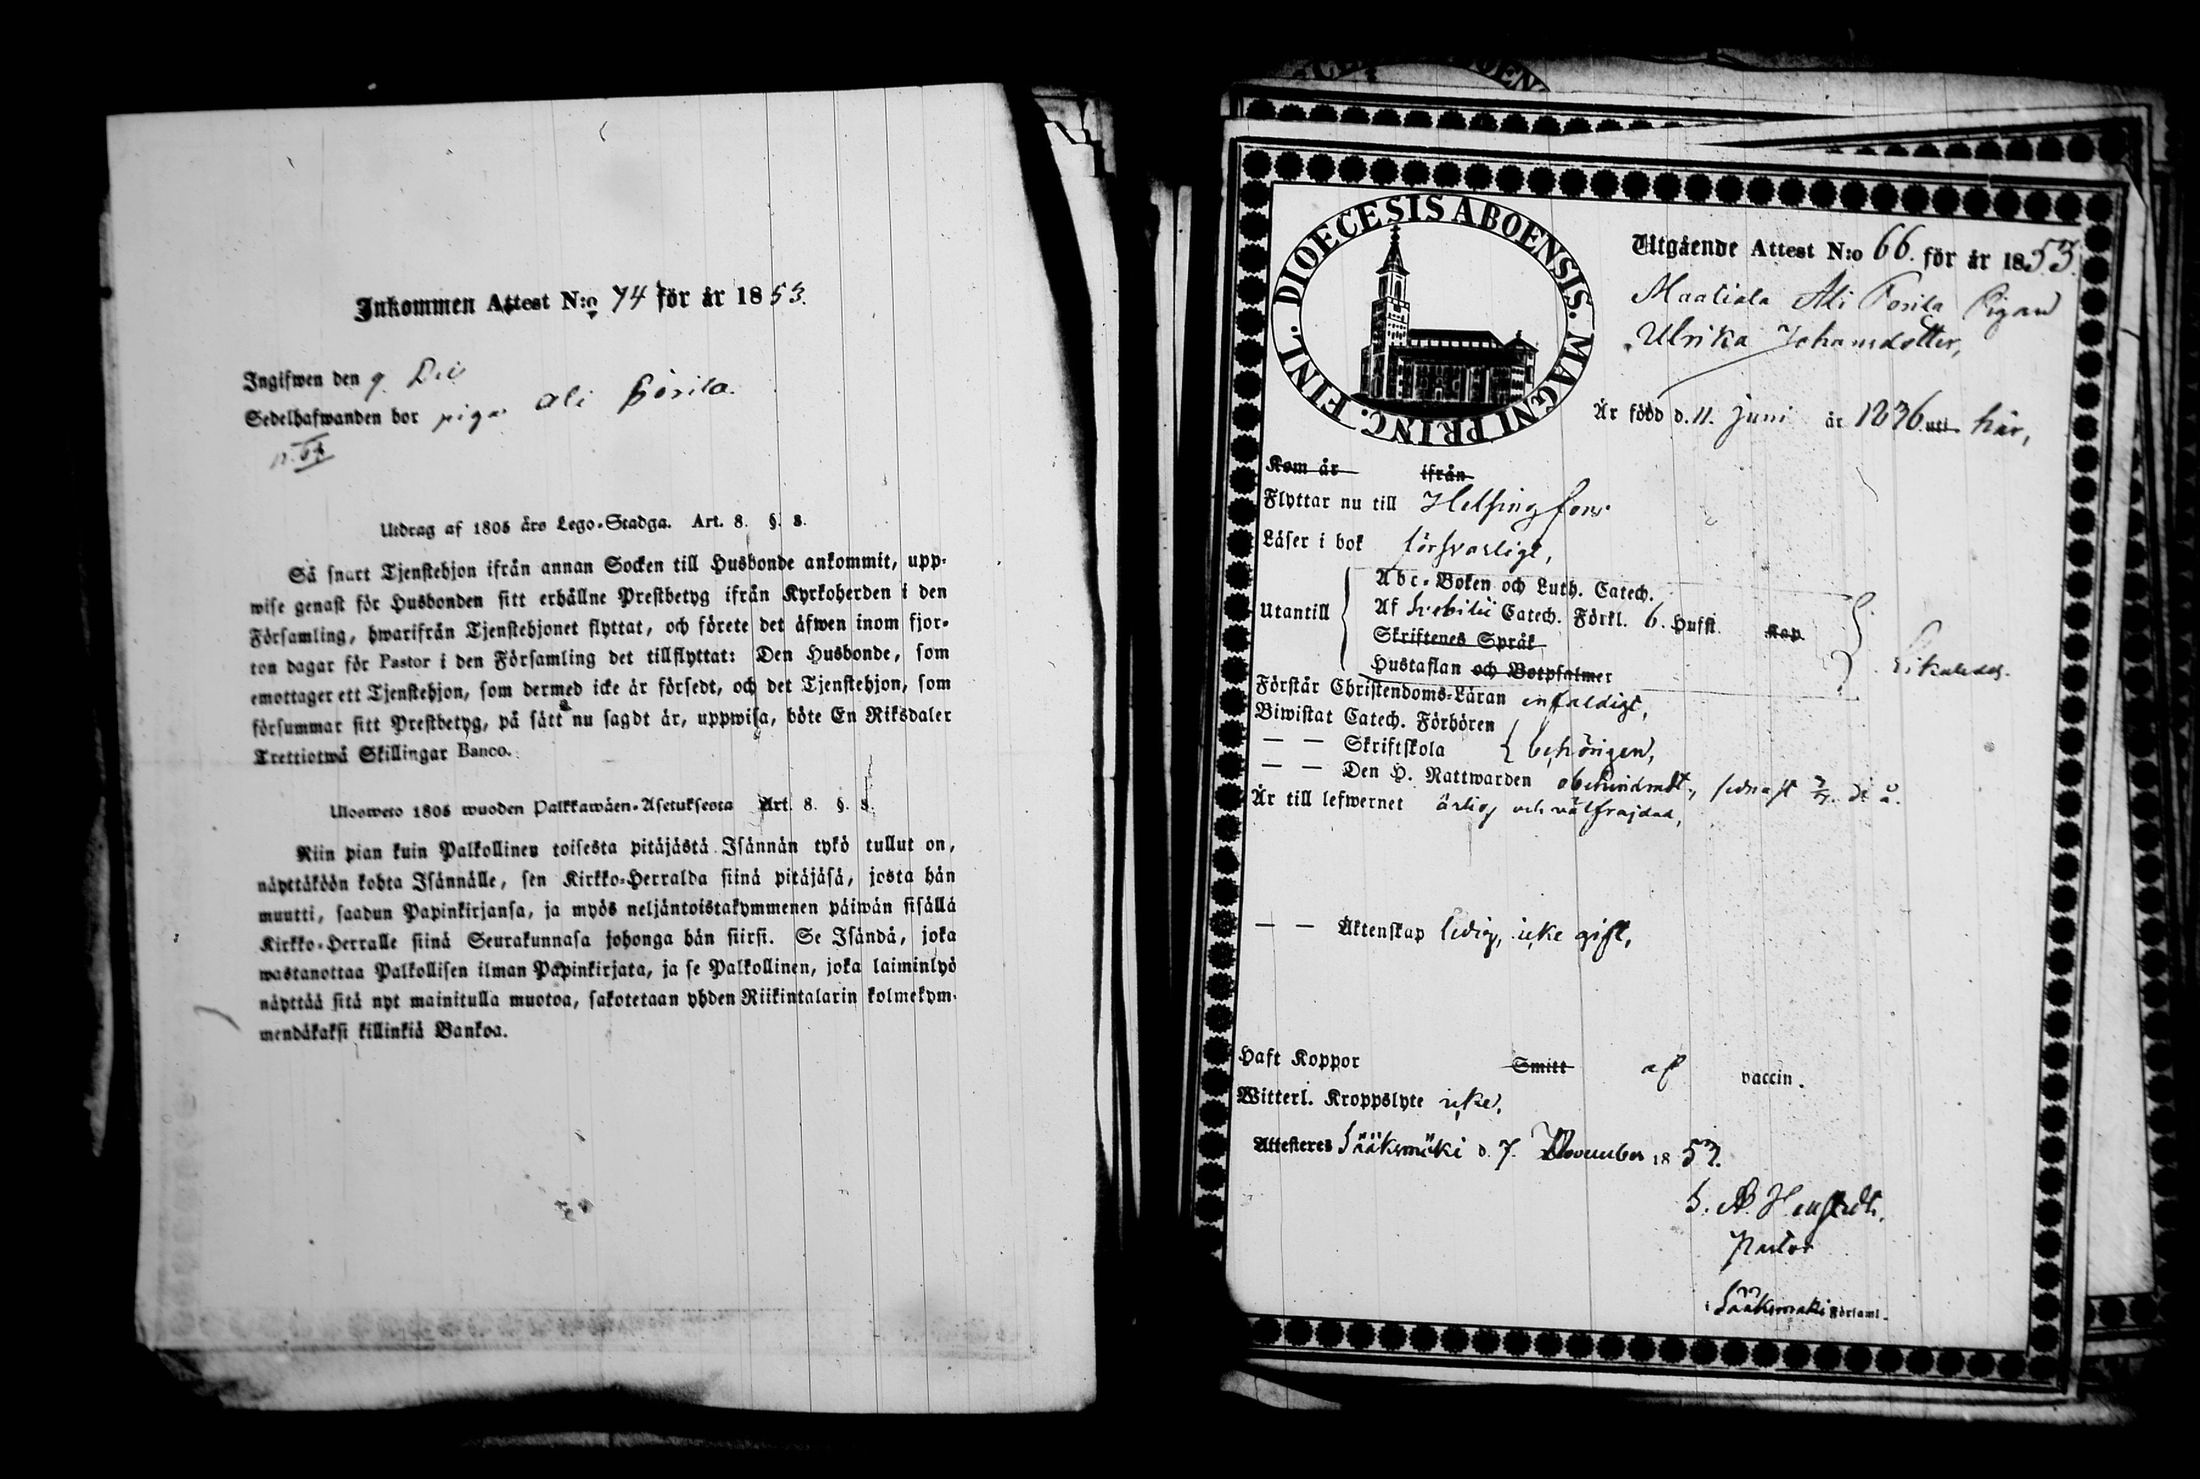 Inkommen Attest N:o 74 för år 1853.
Ingifwen den 9 Dec
Sedelhafwanden bor piga Ali
Utdrag af 1805 års Lego-Stadga. Art. 8. §. 8.
Så snart Tjenstehjon ifrån annan Socken till Husbonde ankommit, upp-
wise genast för Husbonden sitt erhållne Prestbetyg ifrån Kyrkoherden i den
Församling, hwarifrån Tjenstehjonet flyttat, och förete det äfwen inom fjor-
ton dagar för Pastor i den Församling det tillflyttat: Den Husbonde, som
emottager ett Tjenstehjon, som dermed icke är försedt, och det Tjenstehjon, som
försummar sitt Prestbetyg, på sätt nu sagdt är, uppwisa, böte En Riksdaler
Trettiotwå Skillingar Banco.
Ulosweto 1805 wuoden Palkkawäen-Asetuksesta Art. 8. §. 8.
Niin pian kuin Palkollinen toisesta pitäjästä Isännän tykö tullut on,
näyttäköön kohta Isännälle, sen Kirkko-Herralda siinä pitäjäsä, josta hän
muutti, saadun Papinkirjansa, ja myös neljäntoistakymmenen päiwän sisällä
Kirkko-Herralle siinä Seurakunnasa johonga hän siirsi. Se Isändä, joka
wastanottaa Palkollisen ilman Papinkirjata, ja se Palkollinen, joka laiminlyö
näyttää sitä nyt mainitulla muotoa, sakotetaan yhden Riikintalarin kolmekym-
mendäkaksi killinkiä Bankoa.
DIOECESIS ABOENSIS. MAGNI PRINC. FINL.
Utgående Attest N:o 66. för år 1853.
Ali Pigan
Ulrika Johansdotter,
Är född d. 11. Juni år 1836 uti här,
Kom år ifrån
Flyttar nu till Helsingfors
Läser i bok försvarligt,
Utantill
Abc-Boken och Luth. Catech.
Af Svebilii Catech. Förkl. 6. Hufst. Kap.
Skriftenes Språk
Hustaflan och Botpsalmer
Likaledes.
Förstår Christendoms-Läran enfaldigt,
Biwistat Catech. Förhören
— — Skriftskola behörigen,
— — Den H. Nattwarden obehindradt, sednast
Är till lefwernet ärlig och välfrejdad,
— — Äktenskap ledig, icke gift,
Haft Koppor Smitt af vaccin.
Witterl. Kroppslyte icke,
Attesteres Sääksmäki d. 7. November 1853.
Pastor
i Sääksmäki Församl.